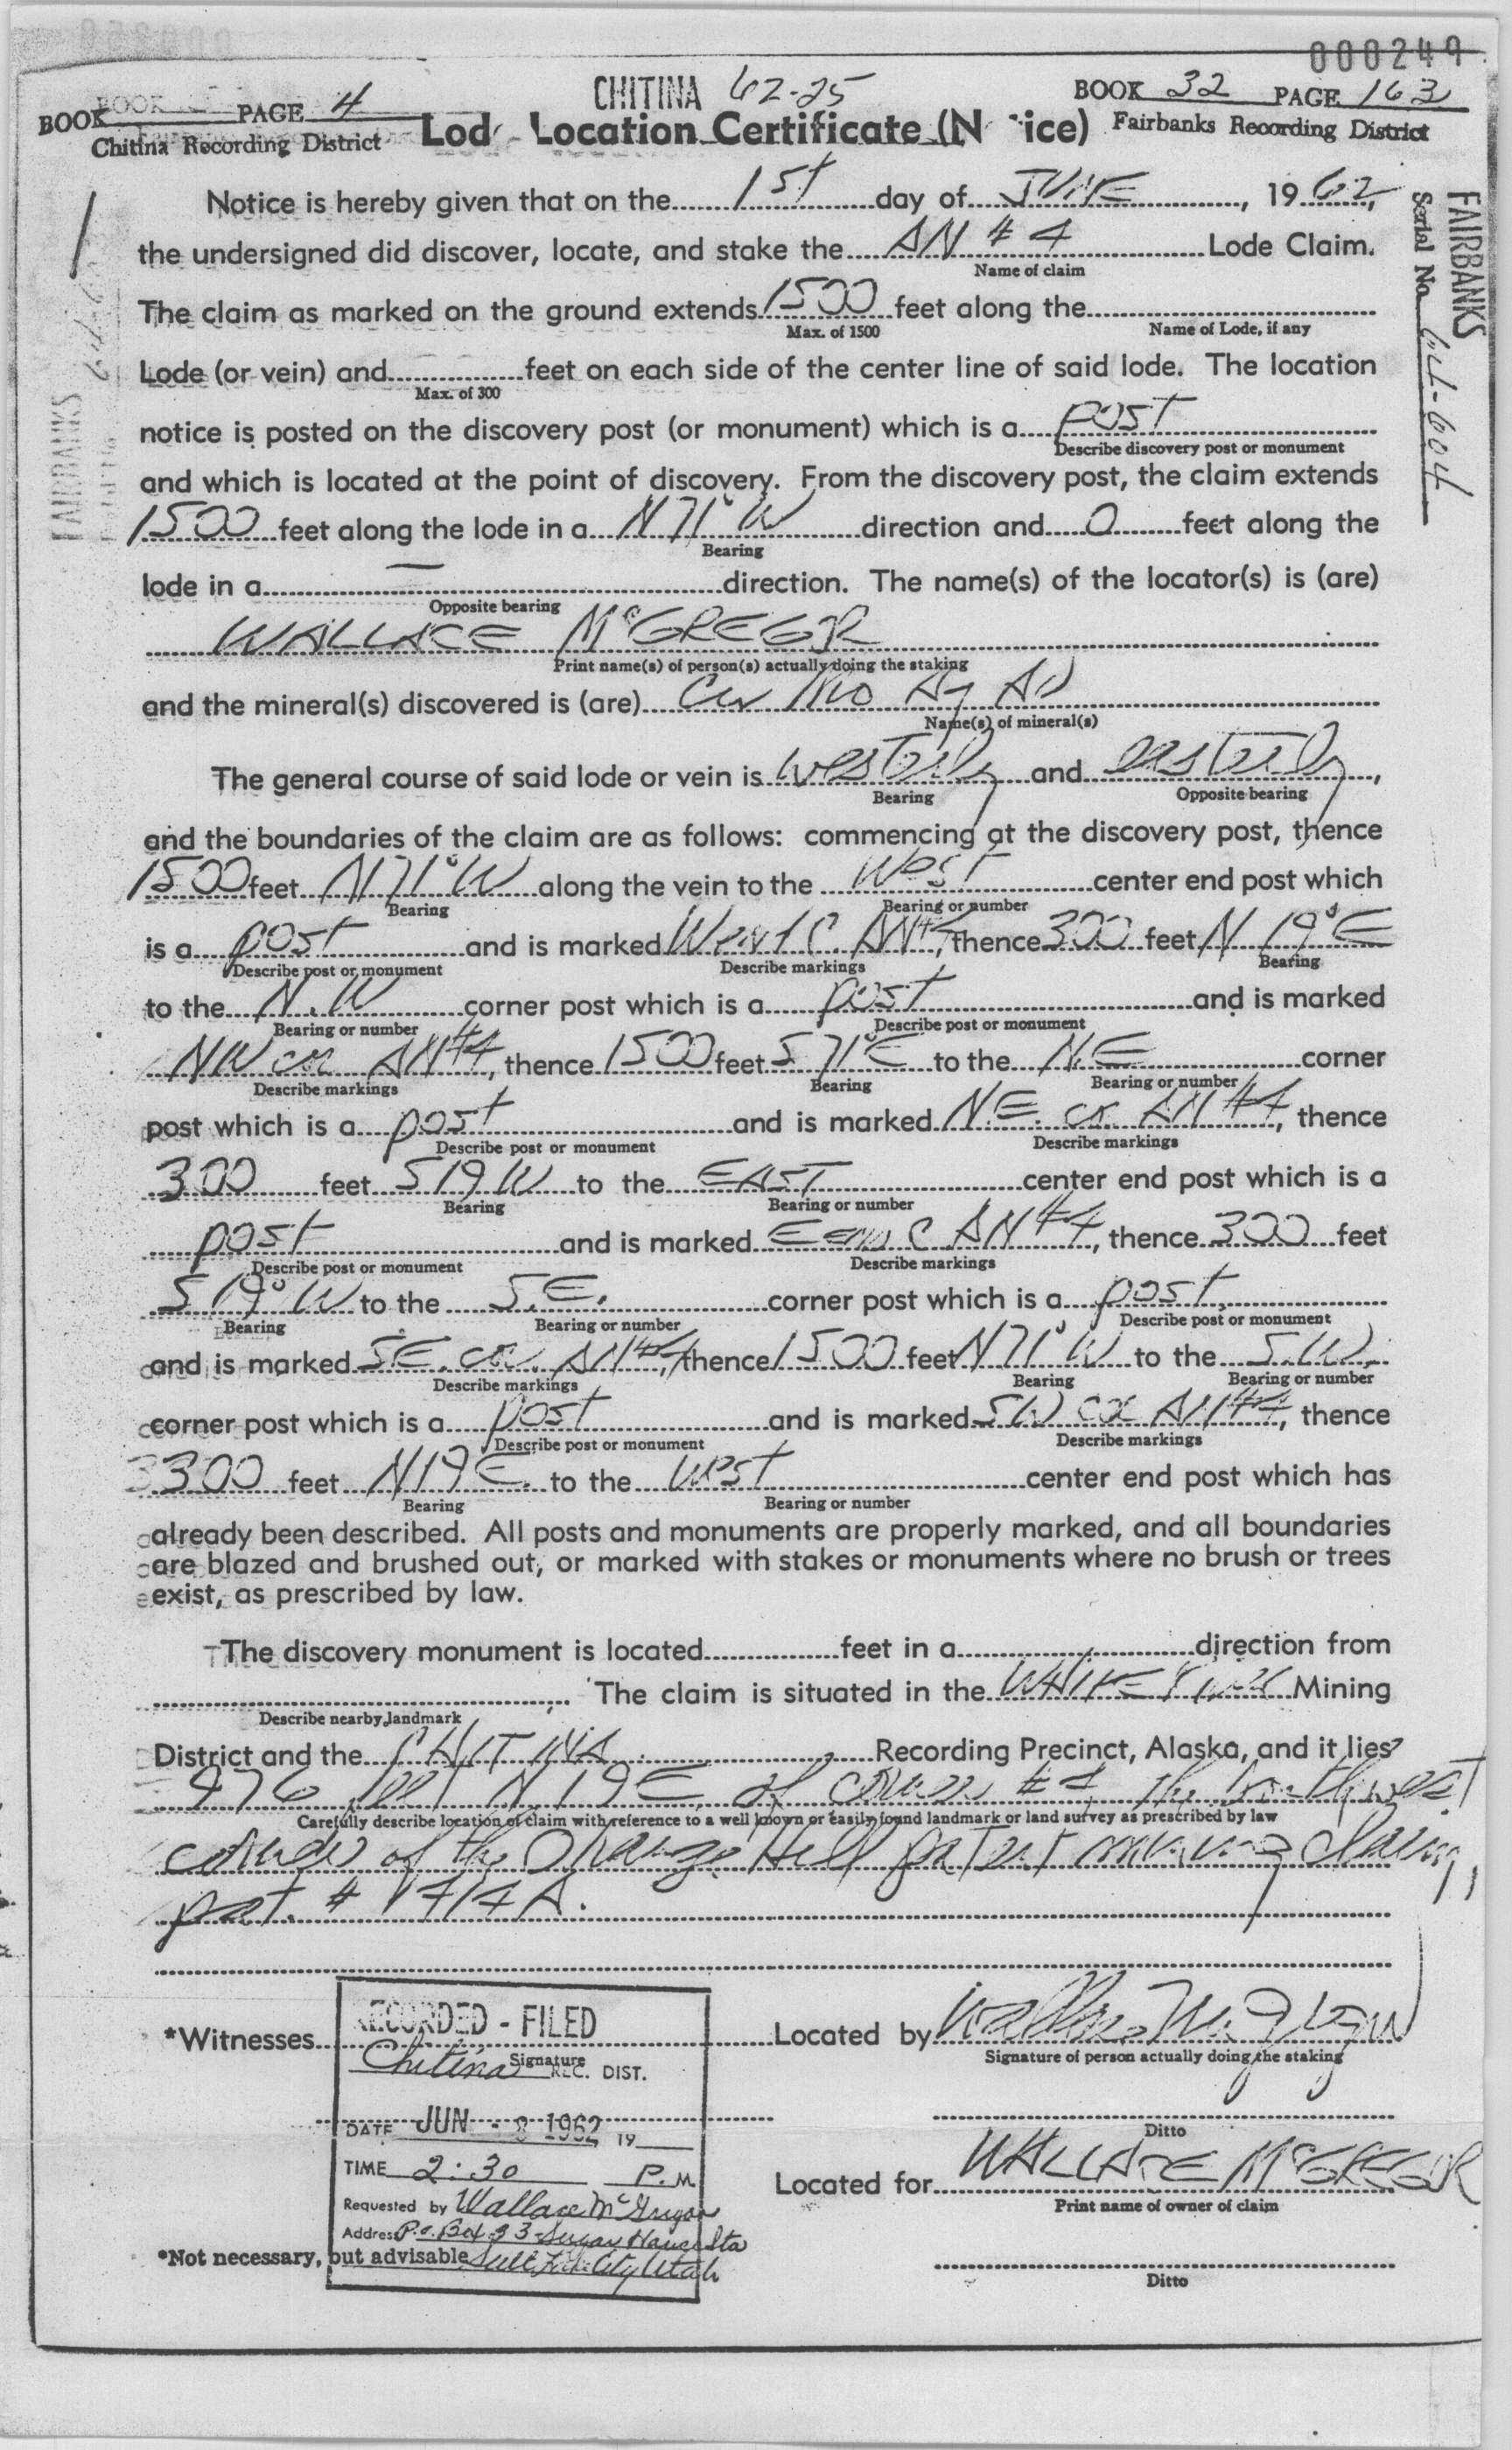 000249
BOOK PAGE 4 CHITINA 62-25 BOOK 32 PAGE 163
Chitina Recording District Lod Location Certificate (N ice) Fairbanks Recording District
FAIRBANKS
Serial No.
FAIRBANKS
Notice is hereby given that on the 1st day of JUNE, 1962,
the undersigned did discover, locate, and stake the AN #4 Lode Claim.
Name of claim
The claim as marked on the ground extends 1500 feet along the
Max. of 1500 Name of Lode, if any
Lode (or vein) and feet on each side of the center line of said lode. The location
Max. of 300
notice is posted on the discovery post (or monument) which is a post
Describe discovery post or monument
and which is located at the point of discovery. From the discovery post, the claim extends
1500 feet along the lode in a N 71° W direction and 0 feet along the
Bearing
lode in a — direction. The name(s) of the locator(s) is (are)
Opposite bearing
WALLACE McGREGOR
Print name(s) of person(s) actually doing the staking
and the mineral(s) discovered is (are) Cu Mo Ag AU
Name(s) of mineral(s)
The general course of said lode or vein is westerly and easterly,
Bearing Opposite bearing
and the boundaries of the claim are as follows: commencing at the discovery post, thence
1500 feet N 71° W along the vein to the West center end post which
Bearing Bearing or number
is a post and is marked AN #4, thence 300 feet N 19° E
Describe post or monument Describe markings Bearing
to the N.W corner post which is a post and is marked
Bearing or number Describe post or monument
NW cor AN #4, thence 1500 feet S 71° E to the N.E corner
Describe markings Bearing Bearing or number
post which is a post and is marked N.E. cor. AN #4, thence
Describe post or monument Describe markings
300 feet S 19 W to the EAST center end post which is a
Bearing Bearing or number
post and is marked E end C AN #4, thence 300 feet
Describe post or monument Describe markings
S 19° W to the S.E. corner post which is a post
Bearing Bearing or number Describe post or monument
and is marked S.E. cor. AN #4, thence 1500 feet N 71° W to the S.W.
Describe markings Bearing Bearing or number
corner post which is a post and is marked SW cor AN #4, thence
Describe post or monument Describe markings
300 feet N 19 E to the West center end post which has
Bearing Bearing or number
already been described. All posts and monuments are properly marked, and all boundaries
are blazed and brushed out, or marked with stakes or monuments where no brush or trees
exist, as prescribed by law.
The discovery monument is located feet in a direction from
. The claim is situated in the WHITE River Mining
Describe nearby landmark
District and the CHITINA Recording Precinct, Alaska, and it lies
976 feet N 19 E of corner #4 the northwest
Carefully describe location of claim with reference to a well known or easily found landmark or land survey as prescribed by law
corner of the Orange Hill patent mining claim,
pat. # 1714 A.
*Witnesses Located by Wallace McGregor
Signature Signature of person actually doing the staking
RECORDED - FILED
Chitina REC. DIST.
DATE JUN - 8 1962 19
TIME 2:30 P.M.
Requested by Wallace McGregor
Address P.O. Box 93 - Sugar House Sta
Salt Lake City Utah
Ditto
Located for WALLACE McGREGOR
Print name of owner of claim
*Not necessary, but advisable
Ditto